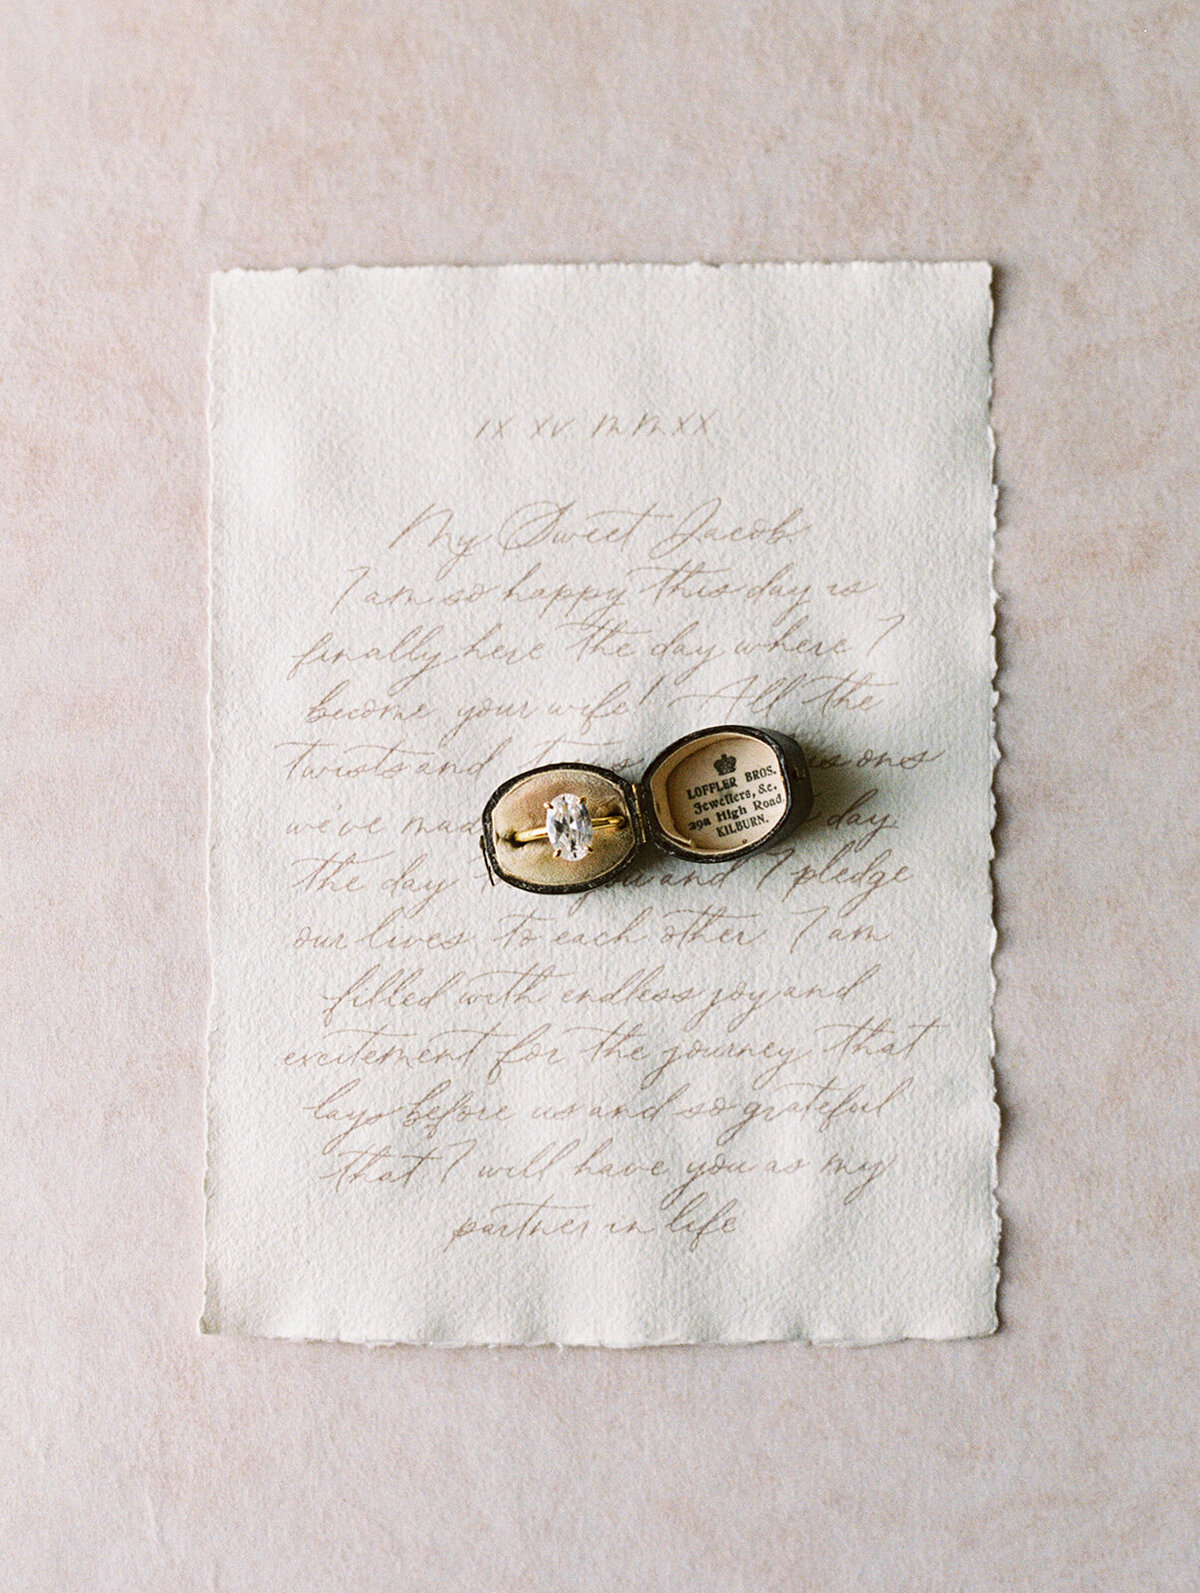 IX XV MMXX
My Sweet Jacob.
I am so happy this day is
finally here the day where I
become your wife! All the
twists and
we've day
the day you and I pledge
our lives to each other I am
filled with endless joy and
excitement for the journey that
lays before us and so grateful
that I will have you as my
partner in life
LOFFLER BROS.
Jewellers, &c.
29a High Road,
KILBURN.